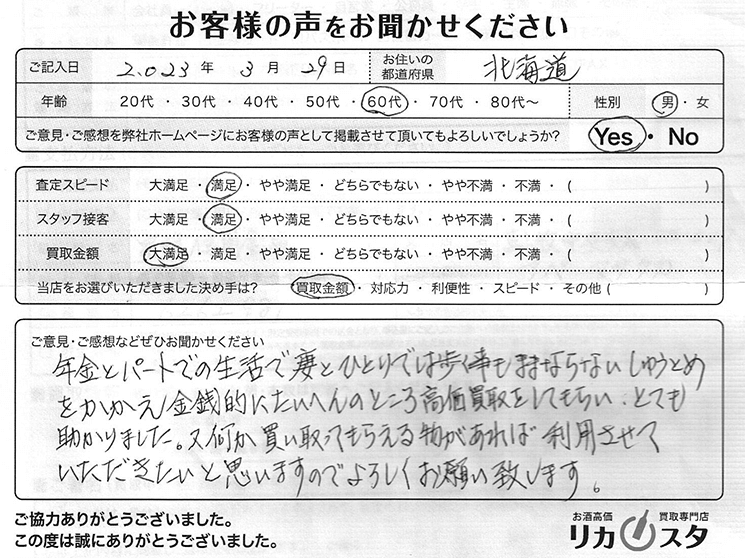 お客様の声をお聞かせください
ご記入日 2023年 3月 29日 お住いの都道府県 北海道
年齢 20代・30代・40代・50代・60代・70代・80代〜 性別 男・女
ご意見・ご感想を弊社ホームページにお客様の声として掲載させて頂いてもよろしいでしょうか? Yes・No
査定スピード 大満足・満足・やや満足・どちらでもない・やや不満・不満・( )
スタッフ接客 大満足・満足・やや満足・どちらでもない・やや不満・不満・( )
買取金額 大満足・満足・やや満足・どちらでもない・やや不満・不満・( )
当店をお選びいただきました決め手は? 買取金額・対応力・利便性・スピード・その他( )
ご意見・ご感想などぜひお聞かせください
年金とパートでの生活で妻とひとりでは歩く事もままならないしゅうとめ
をかかえ金銭的にたいへんのところ高価買取をしてもらい、とても
助かりました。又何か買い取ってもらえる物があれば利用させて
いただきたいと思いますのでよろしくお願い致します。
ご協力ありがとうございました。
この度は誠にありがとうございました。
お酒高価 買取専門店
リカスタ